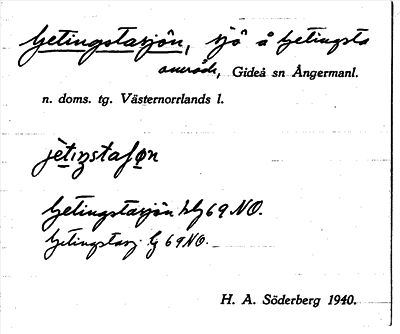 Getingstasjön, sjö å Getingsta
område, Gideå sn Ångermanl.
n. doms. tg. Västernorrlands l.
Getingstasjön hG 69 NO.
Getingstasj. G 69 NO.
H. A. Söderberg 1940.